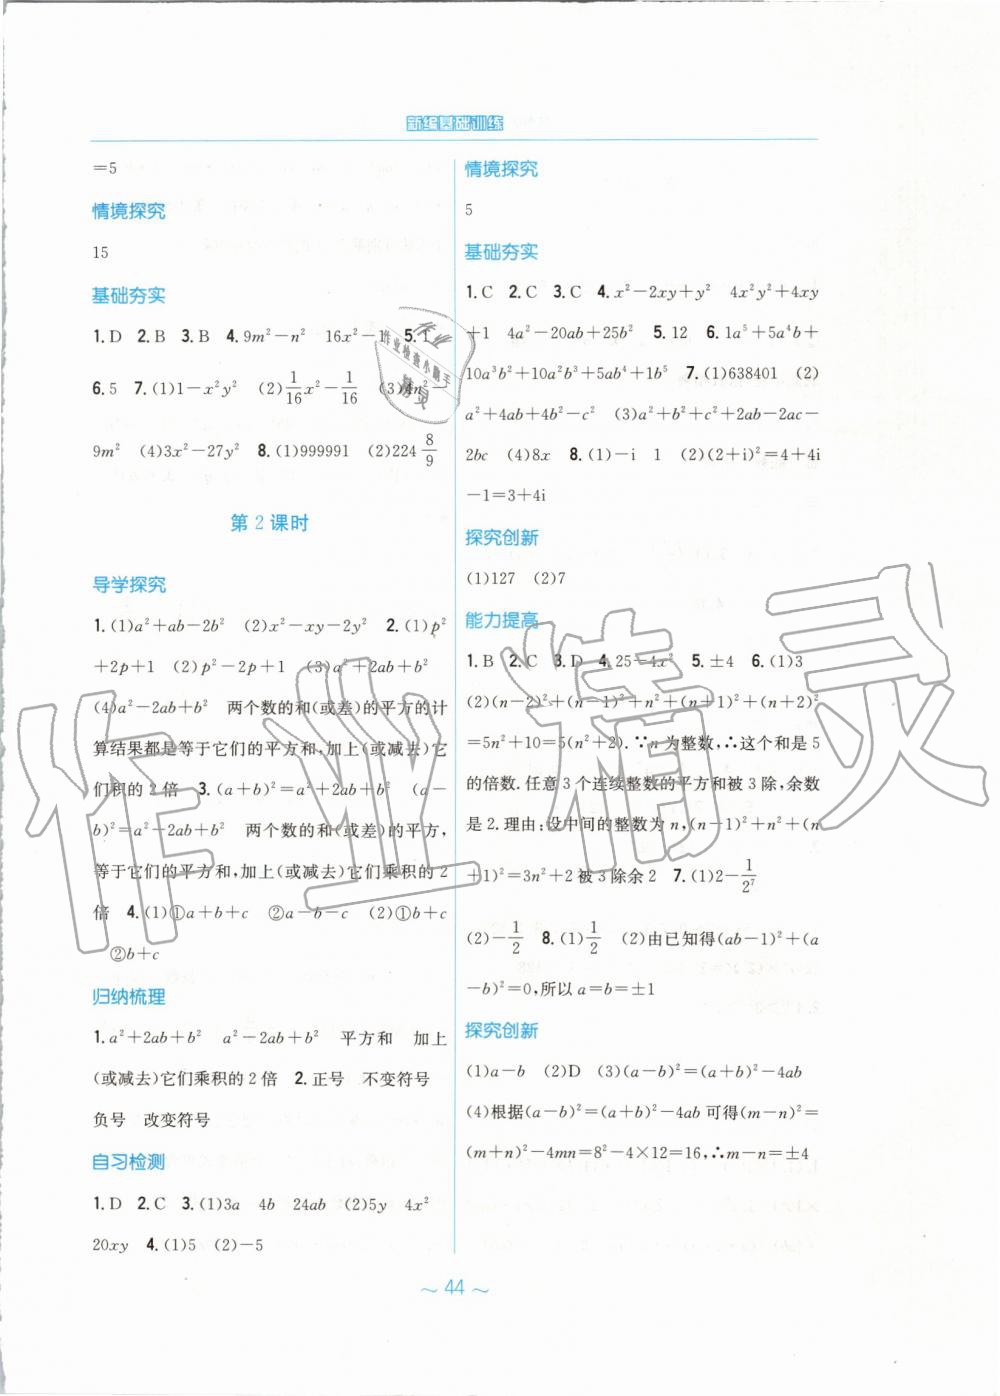 新编基础训练
=5
情境探究
15
基础夯实
1.D 2.B 3.B 4.9m²-n² 16x²-1 5.1
6.5 7.(1)1-x²y² (2)1/16x²-1/16 (3)4n²-
9m² (4)3x²-27y² 8.(1)999991 (2)224 8/9
第2课时
导学探究
1.(1)a²+ab-2b² (2)x²-xy-2y² 2.(1)p²
+2p+1 (2)p²-2p+1 (3)a²+2ab+b²
(4)a²-2ab+b² 两个数的和(或差)的平方的计
算结果都是等于它们的平方和,加上(或减去)它
们积的2倍 3.(a+b)²=a²+2ab+b² (a-
b)²=a²-2ab+b² 两个数的和(或差)的平方,
等于它们的平方和,加上(或减去)它们乘积的2
倍 4.(1)①a+b+c ②a-b-c (2)①b+c
②b+c
归纳梳理
1.a²+2ab+b² a²-2ab+b² 平方和 加上
(或减去)它们乘积的2倍 2.正号 不变符号
负号 改变符号
自习检测
1.D 2.C 3.(1)3a 4b 24ab (2)5y 4x²
20xy 4.(1)5 (2)-5
情境探究
5
基础夯实
1.C 2.C 3.C 4.x²-2xy+y² 4x²y²+4xy
+1 4a²-20ab+25b² 5.12 6.1a⁵+5a⁴b+
10a³b²+10a²b³+5ab⁴+1b⁵ 7.(1)638401 (2)
a²+4ab+4b²-c² (3)a²+b²+c²+2ab-2ac-
2bc (4)8x 8.(1)-i 1 (2)(2+i)²=4+4i
-1=3+4i
探究创新
(1)127 (2)7
能力提高
1.B 2.C 3.D 4.25-4x² 5.±4 6.(1)3
(2)(n-2)²+(n-1)²+n²+(n+1)²+(n+2)²
=5n²+10=5(n²+2).∵n为整数,∴这个和是5
的倍数.任意3个连续整数的平方和被3除,余数
是2.理由:设中间的整数为n,(n-1)²+n²+(n
+1)²=3n²+2被3除余2 7.(1)2-1/2⁷
(2)-1/2 8.(1)1/2 (2)由已知得(ab-1)²+(a
-b)²=0,所以a=b=±1
探究创新
(1)a-b (2)D (3)(a-b)²=(a+b)²-4ab
(4)根据(a-b)²=(a+b)²-4ab可得(m-n)²=
(m+n)²-4mn=8²-4×12=16,∴m-n=±4
~ 44 ~
作业精灵
作业检查小助手
精灵